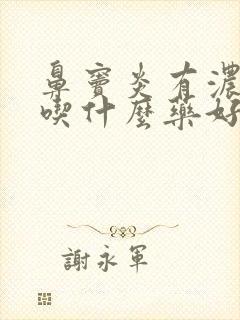 鼻竇炎有濃
喫什麼藥好
謝永軍